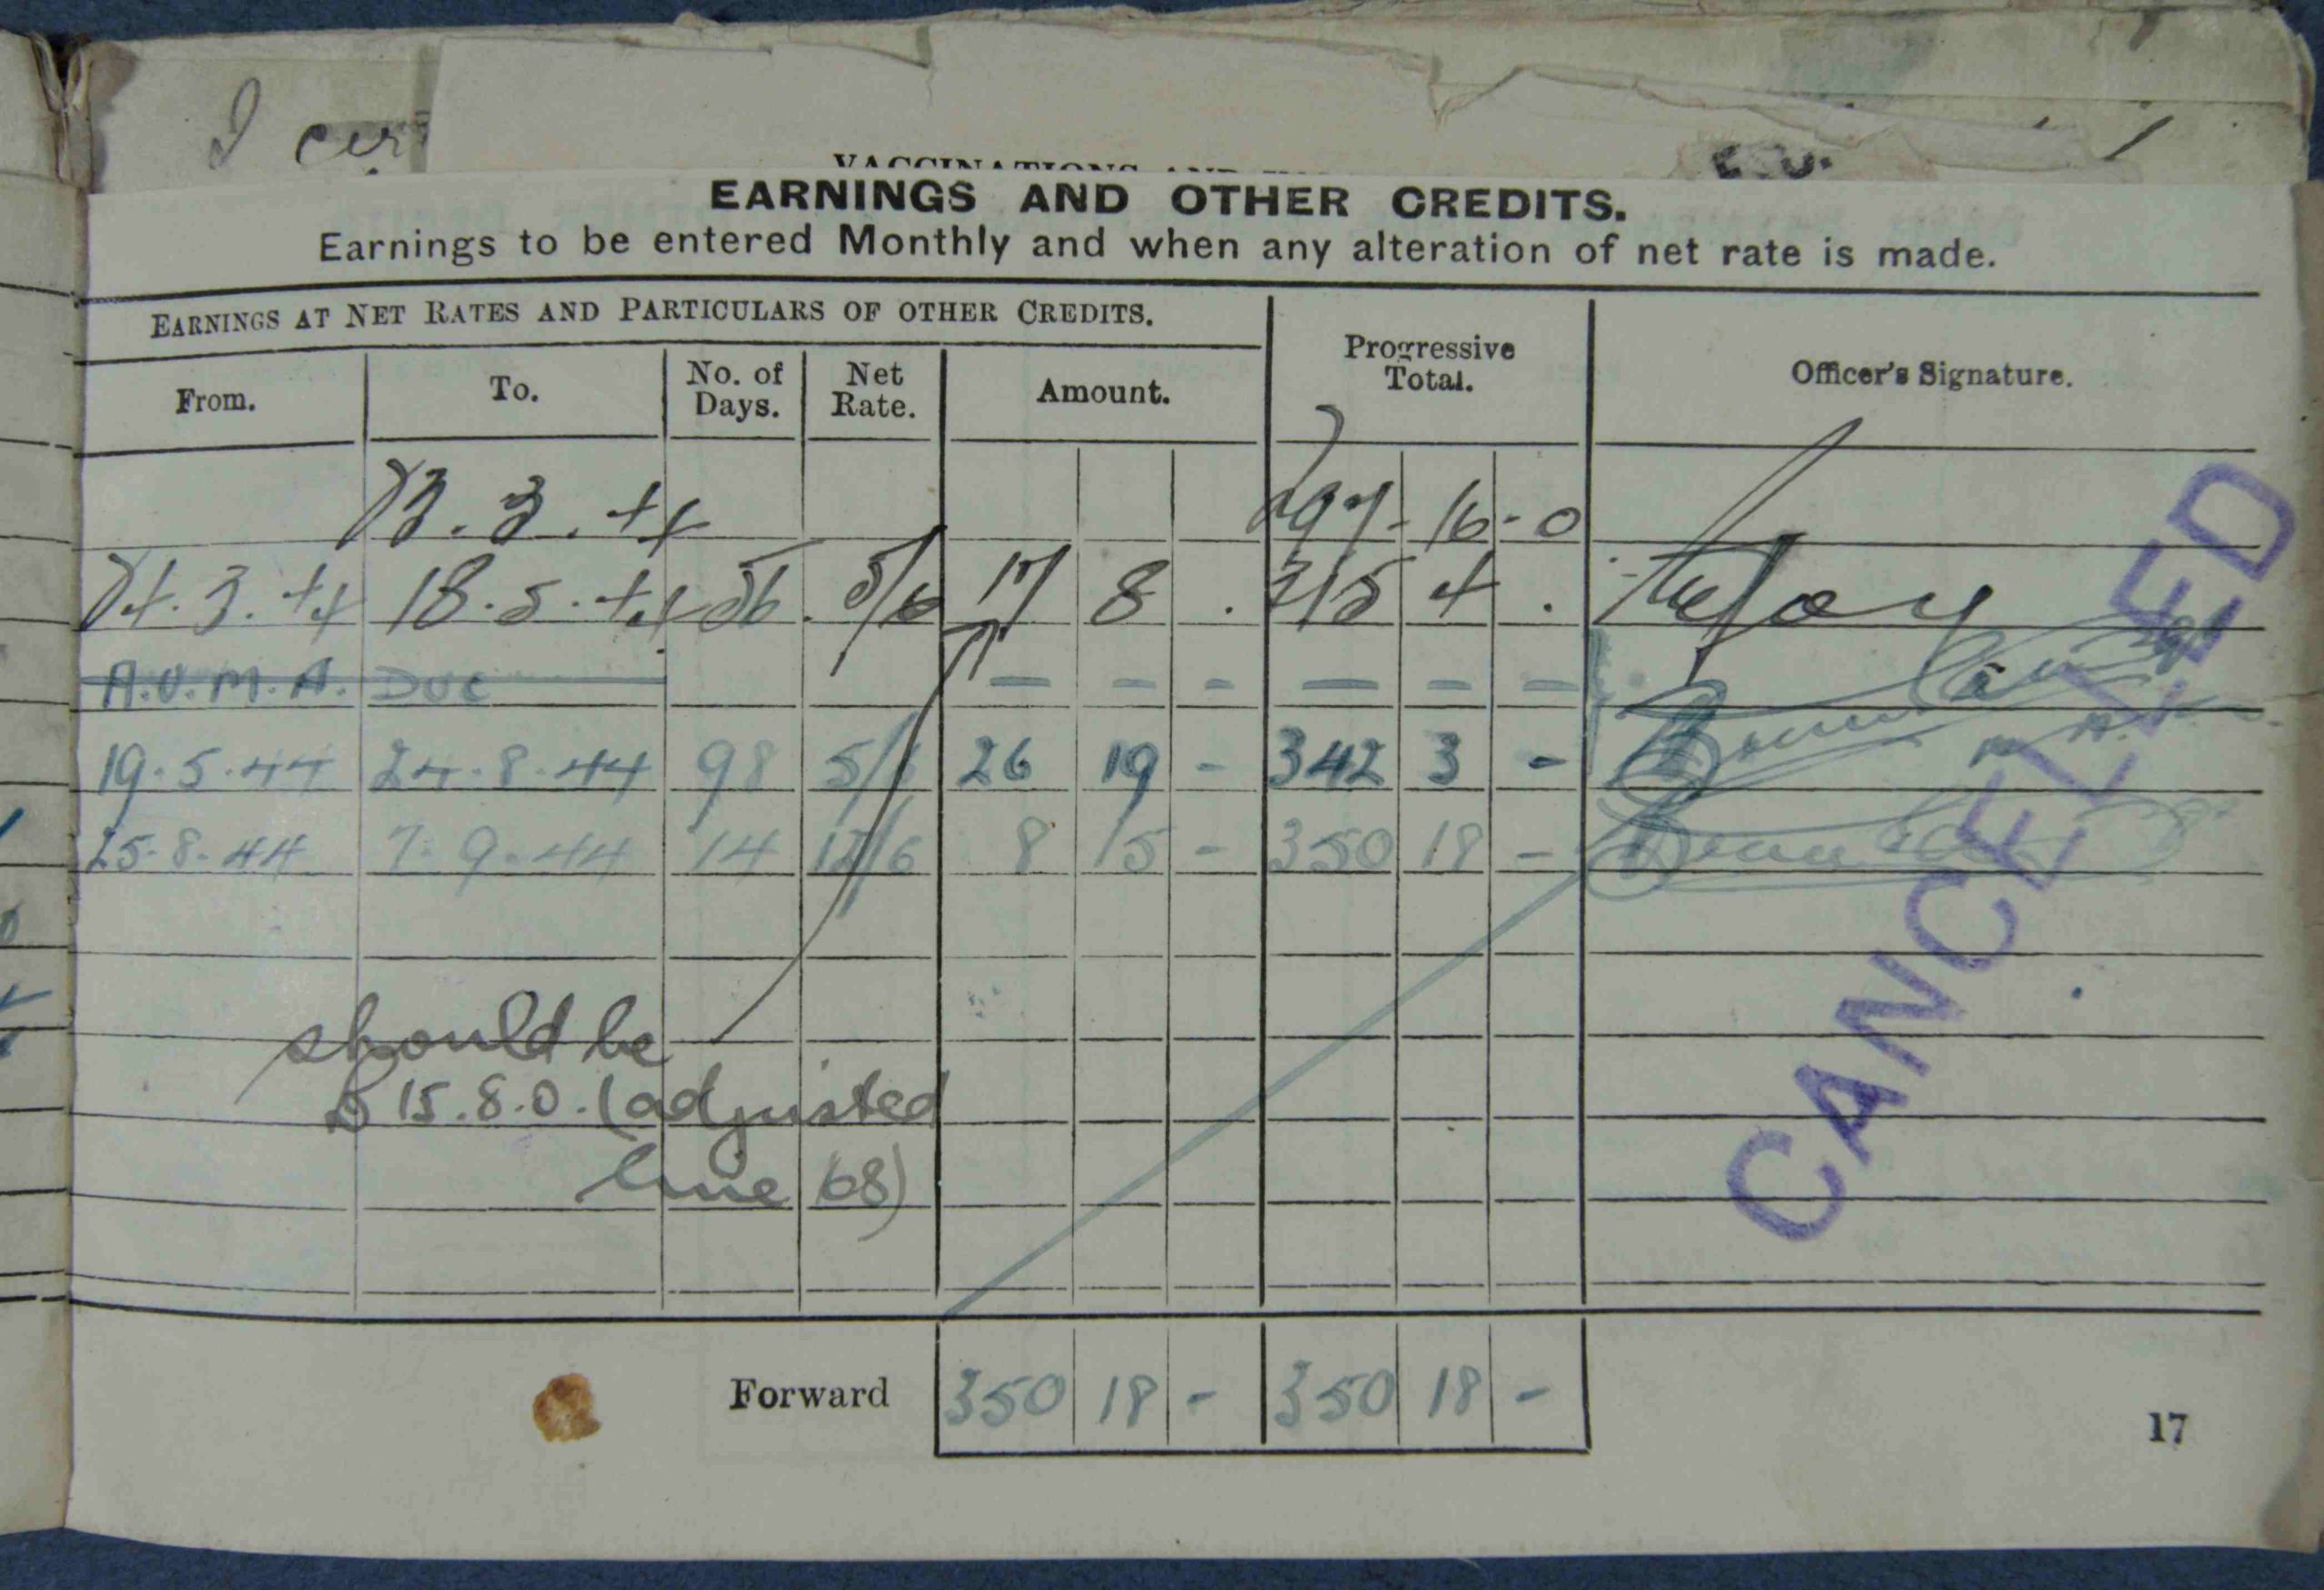 I cer
VACCINATIONS AND
EARNINGS AND OTHER CREDITS.
Earnings to be entered Monthly and when any alteration of net rate is made.
EARNINGS AT NET RATES AND PARTICULARS OF OTHER CREDITS.
Progressive Total.
Officer's Signature.
From. To. No. of Days. Net Rate. Amount.
23.3.44 297-16-0
24.3.44 18.5.44 56. 5/6 17 8 . 315 4 .
A.V.M.A. DUE — — - — — —
19.5.44 24.8.44 98 5/6 26 19 - 342 3 -
25.8.44 7.9.44 14 12/6 8 15 - 350 18 -
should be
£15.8.0. (adjusted
line 68)
CANCELLED
Forward 350 18 - 350 18 -
17